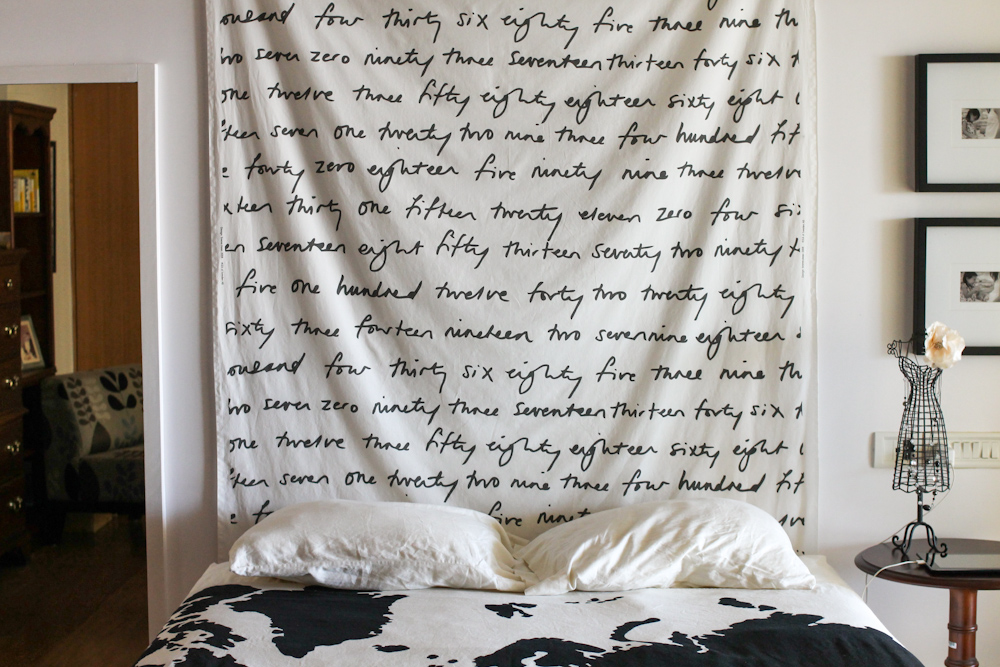 ousand four thirty six eighty five three nine th
wo seven zero ninety three seventeen thirteen forty six t
one twelve three fifty eighty eighteen sixty eight
teen seven one twenty two nine three four hundred fif
e fourty zero eighteen five ninety nine three twelve
xteen thirty one fifteen twenty eleven zero four six
en seventeen eight fifty thirteen seventy two ninety t
five one hundred twelve forty two twenty eighty
sixty three fourteen nineteen two seven nine eighteen
ousand four thirty six eighty five three nine th
wo seven zero ninety three seventeen thirteen forty six t
one twelve three fifty eighty eighteen sixty eight
teen seven one twenty two nine three four hundred fif
e f five ninet